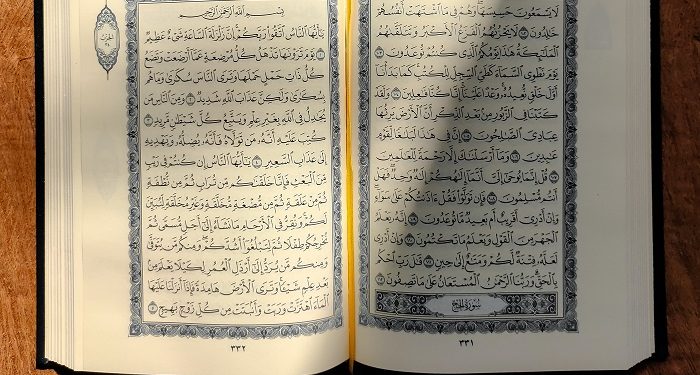 لَا يَسْمَعُونَ حَسِيسَهَا وَهُمْ فِي مَا ٱشْتَهَتْ أَنفُسُهُمْ
خَٰلِدُونَ ١٠٢ لَا يَحْزُنُهُمُ ٱلْفَزَعُ ٱلْأَكْبَرُ وَتَتَلَقَّىٰهُمُ
ٱلْمَلَٰٓئِكَةُ هَٰذَا يَوْمُكُمُ ٱلَّذِي كُنتُمْ تُوعَدُونَ ١٠٣
يَوْمَ نَطْوِي ٱلسَّمَآءَ كَطَيِّ ٱلسِّجِلِّ لِلْكُتُبِ كَمَا بَدَأْنَآ
أَوَّلَ خَلْقٍ نُّعِيدُهُۥ وَعْدًا عَلَيْنَآ إِنَّا كُنَّا فَٰعِلِينَ ١٠٤ وَلَقَدْ
كَتَبْنَا فِي ٱلزَّبُورِ مِنۢ بَعْدِ ٱلذِّكْرِ أَنَّ ٱلْأَرْضَ يَرِثُهَا
عِبَادِيَ ٱلصَّٰلِحُونَ ١٠٥ إِنَّ فِي هَٰذَا لَبَلَٰغًا لِّقَوْمٍ
عَٰبِدِينَ ١٠٦ وَمَآ أَرْسَلْنَٰكَ إِلَّا رَحْمَةً لِّلْعَٰلَمِينَ ١٠٧
قُلْ إِنَّمَا يُوحَىٰٓ إِلَيَّ أَنَّمَآ إِلَٰهُكُمْ إِلَٰهٌ وَٰحِدٌ فَهَلْ
أَنتُم مُّسْلِمُونَ ١٠٨ فَإِن تَوَلَّوْا۟ فَقُلْ ءَاذَنتُكُمْ عَلَىٰ سَوَآءٍ
وَإِنْ أَدْرِيٓ أَقَرِيبٌ أَم بَعِيدٌ مَّا تُوعَدُونَ ١٠٩ إِنَّهُۥ يَعْلَمُ
ٱلْجَهْرَ مِنَ ٱلْقَوْلِ وَيَعْلَمُ مَا تَكْتُمُونَ ١١٠ وَإِنْ أَدْرِي
لَعَلَّهُۥ فِتْنَةٌ لَّكُمْ وَمَتَٰعٌ إِلَىٰ حِينٍ ١١١ قَٰلَ رَبِّ ٱحْكُم
بِٱلْحَقِّ وَرَبُّنَا ٱلرَّحْمَٰنُ ٱلْمُسْتَعَانُ عَلَىٰ مَا تَصِفُونَ ١١٢
سُورَةُ الحَجِّ
٣٣١
بِسْمِ ٱللَّهِ ٱلرَّحْمَٰنِ ٱلرَّحِيمِ
يَٰٓأَيُّهَا ٱلنَّاسُ ٱتَّقُوا۟ رَبَّكُمْ إِنَّ زَلْزَلَةَ ٱلسَّاعَةِ شَيْءٌ عَظِيمٌ
١ يَوْمَ تَرَوْنَهَا تَذْهَلُ كُلُّ مُرْضِعَةٍ عَمَّآ أَرْضَعَتْ وَتَضَعُ
كُلُّ ذَاتِ حَمْلٍ حَمْلَهَا وَتَرَى ٱلنَّاسَ سُكَٰرَىٰ وَمَا هُم
بِسُكَٰرَىٰ وَلَٰكِنَّ عَذَابَ ٱللَّهِ شَدِيدٌ ٢ وَمِنَ ٱلنَّاسِ مَن
يُجَٰدِلُ فِي ٱللَّهِ بِغَيْرِ عِلْمٍ وَيَتَّبِعُ كُلَّ شَيْطَٰنٍ مَّرِيدٍ ٣
كُتِبَ عَلَيْهِ أَنَّهُۥ مَن تَوَلَّاهُ فَأَنَّهُۥ يُضِلُّهُۥ وَيَهْدِيهِ
إِلَىٰ عَذَابِ ٱلسَّعِيرِ ٤ يَٰٓأَيُّهَا ٱلنَّاسُ إِن كُنتُمْ فِي رَيْبٍ
مِّنَ ٱلْبَعْثِ فَإِنَّا خَلَقْنَٰكُم مِّن تُرَابٍ ثُمَّ مِن نُّطْفَةٍ
ثُمَّ مِنْ عَلَقَةٍ ثُمَّ مِن مُّضْغَةٍ مُّخَلَّقَةٍ وَغَيْرِ مُخَلَّقَةٍ لِّنُبَيِّنَ
لَكُمْ وَنُقِرُّ فِي ٱلْأَرْحَامِ مَا نَشَآءُ إِلَىٰٓ أَجَلٍ مُّسَمًّى ثُمَّ
نُخْرِجُكُمْ طِفْلًا ثُمَّ لِتَبْلُغُوٓا۟ أَشُدَّكُمْ وَمِنكُم مَّن يُتَوَفَّىٰ
وَمِنكُم مَّن يُرَدُّ إِلَىٰٓ أَرْذَلِ ٱلْعُمُرِ لِكَيْلَا يَعْلَمَ مِنۢ
بَعْدِ عِلْمٍ شَيْـًٔا وَتَرَى ٱلْأَرْضَ هَامِدَةً فَإِذَآ أَنزَلْنَا عَلَيْهَا
ٱلْمَآءَ ٱهْتَزَّتْ وَرَبَتْ وَأَنۢبَتَتْ مِن كُلِّ زَوْجٍۭ بَهِيجٍ ٥
٣٣٢